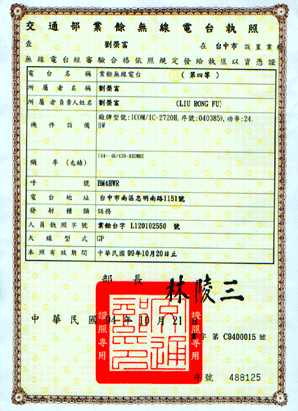 交通部業餘無線電台執照
茲 劉榮富 在 台中市 設置業餘
無線電台經審驗合格依照規定發給執照以資憑證
電台名稱 業餘無線電台 (第四等)
所屬者名稱 劉榮富
所屬者負責人姓名 劉榮富 (LIU RONG FU)
機件設備 廠牌型號:ICOM/IC-2720H,序號:0403859,功率:24.
9W
頻率(兆赫) 144-146/430-432MHZ
呼號 BM4HWR
電台地址 台中市南區忠明南路1151號
發射種類 話務
人員執照字號 業餘台字 L120102550 號
天線型式 GP
本照有效期間 中華民國 99年10月20日止
部長 林陵三
中華民國 94 年 10 月 21
字第 C9400015 號
證照專用
證照專用
序號 488125